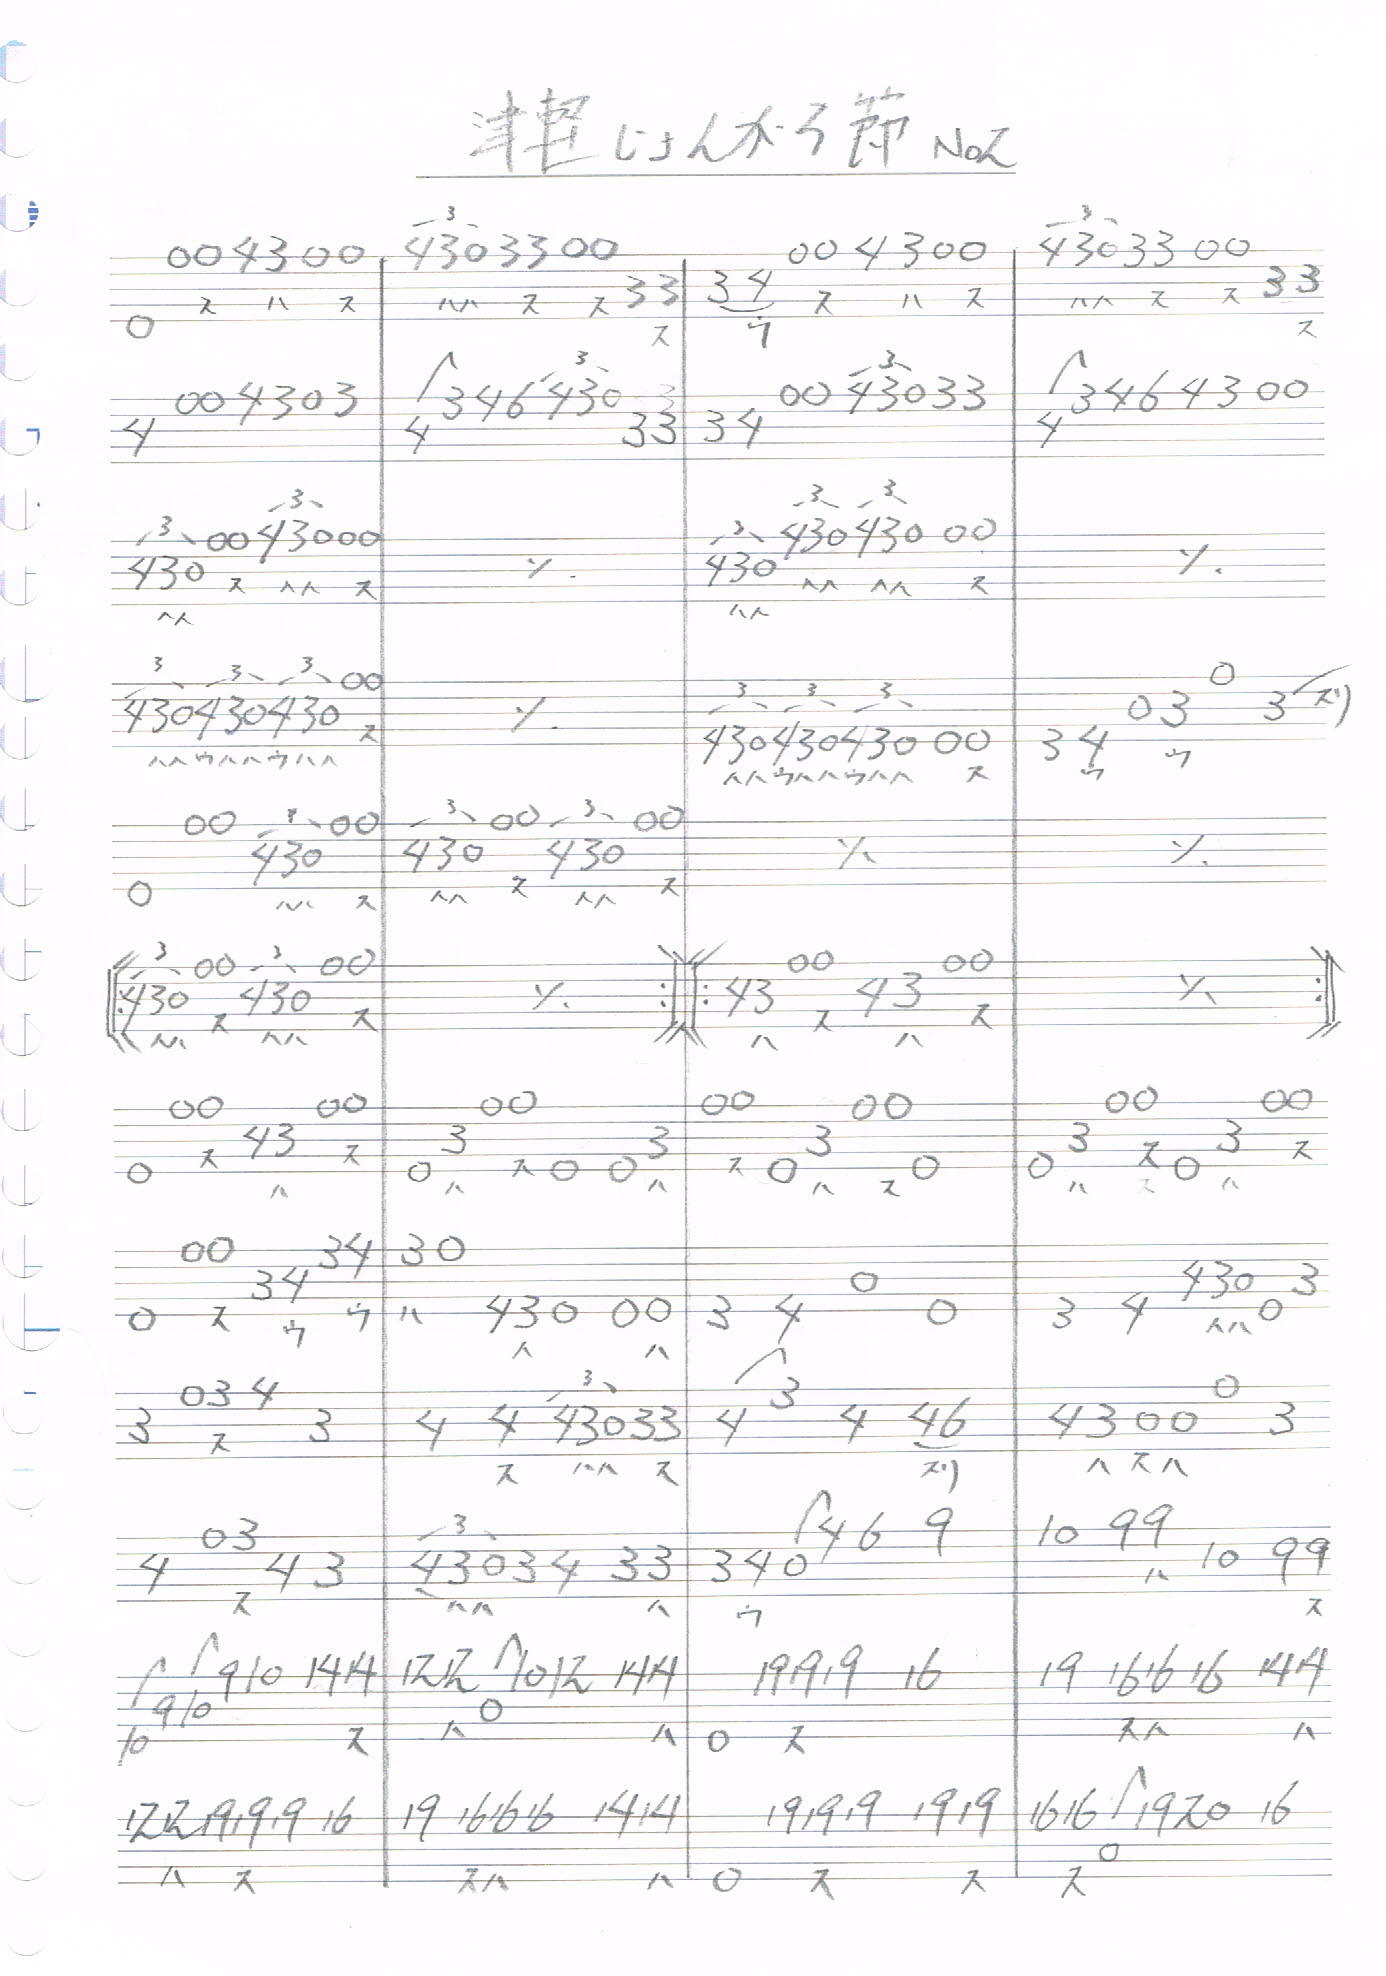 津軽じょんがら節 No2
3 3
00 4 3 00 430 33 00 00 4 3 00 430 33 00
0 ス ハ ス ハハ ス ス 33 34 ス ハ ス ハハ ス ス 33
ス ウ ス
3 3
00 4 3 0 3 3 4 6 430 00 430 33 3 4 6 4 3 00
4 4 33 34 4
3 3 3 3 3
430 00 430 00 ٪ 430 430 430 00 ٪
ハハ ス ハハ ス ハハ ハハ ハハ ス
3 3 3 3 3 3
430 430 430 00 ٪ 430 430 430 00 3 4 0 3 0 3 スリ
ハハ ウ ハハ ウ ハハ ス ハハ ウ ハハ ウ ハハ ス ウ ウ
3 3 3
0 00 430 00 430 00 430 00 ٪ ٪
ハハ ス ハハ ス ハハ ス
3 3
430 00 430 00 ٪ 43 00 43 00 ٪
ハハ ス ハハ ス ハ ス ハ ス
0 00 43 00 0 3 00 0 0 3 00 0 3 00 0 0 3 00 0 3 00
ス ハ ス ハ ス ハ ス ハ ス ハ ス ハ ス
0 00 34 34 30 430 00 3 4 0 0 3 4 430 0 3
ス ウ ウ ハ ハ ハ ハハ
3
3 03 4 3 4 4 430 33 4 3 4 46 4 3 0 0 0 3
ス ス ハハ ス スリ ハ ス ハ
3
4 03 4 3 430 34 33 34 0 4 6 9 10 99 10 99
ス ハハ ハ ウ ハ ス
10 910 910 1414 1212 0 1012 1414 0 191919 16 19 1616 16 1414
ス ハ ハ ス スハ ハ
1212 191919 16 19 161616 1414 0 191919 1919 1616 0 1920 16
ハ ス スハ ハ ス ス ス